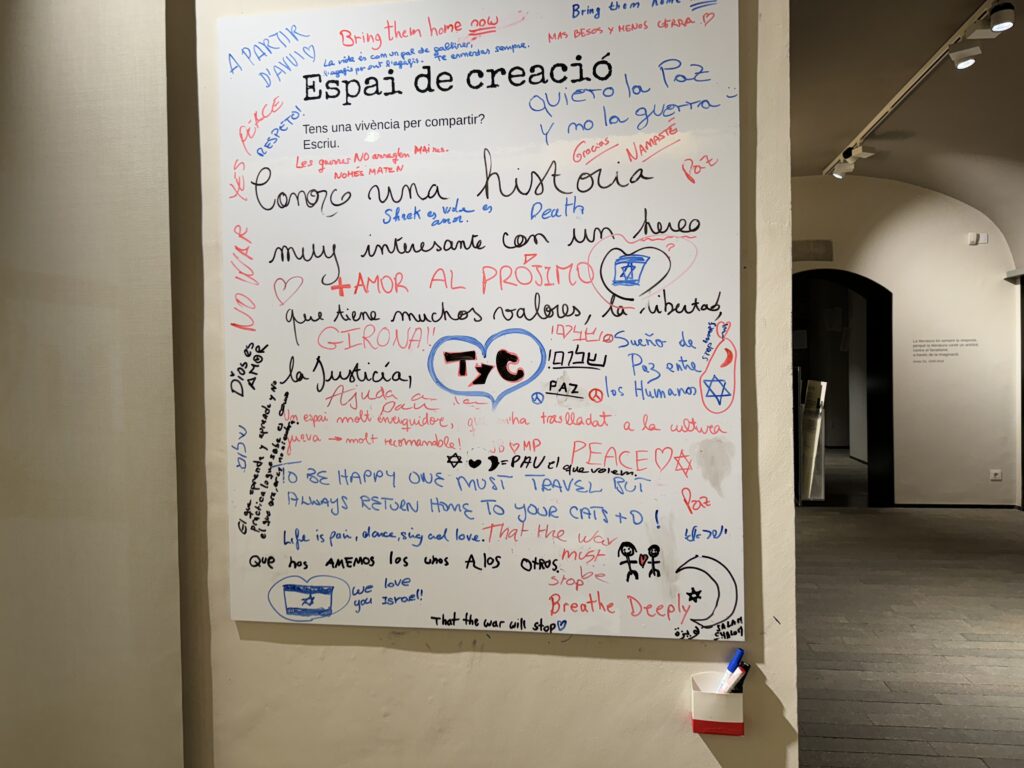 Bring them home now
Bring them home
MAS BESOS Y MENOS GERRA ♡
A PARTIR
D'AVUI ♡
La vida és com un pal de galliner,
Te enmerdas sempre.
Espai de creació
QUIERO la Paz
Y no la guerra
PEACE
RESPETO!
Tens una vivència per compartir?
Escriu.
Les guerres NO arreglen MAI res.
NOMÉS MATEN
Gracias
NAMASTÉ
Paz
YES
Conozco una historia
es
amor.
Death
muy interesante con un hereo
NO WAR
+ AMOR AL PRÓJIMO
que tiene muchos valores, la libertad,
GIRONA!!
שלום!
שלום!
Sueño de
Paz entre
los Humanos
T y C
PAZ
Dios es
AMOR
la Justicia,
Ajuda
Un espai molt
ha traslladat a la cultura
jueva → molt recomanable!
MP
PEACE ♡ ✡
שלום
✡ ♥ ☽ = PAU el que volem
TO BE HAPPY ONE MUST TRAVEL BUT
ALWAYS RETURN HOME TO YOUR CATS + D!
Paz
Life is pain, dance, sing and love.
That the war
must
be
stop
Que nos AMEMOS los unos A los OTROS
we love
you ISRAEL!!
Breathe Deeply
That the war will stop ♡
SALAM
SHALOM